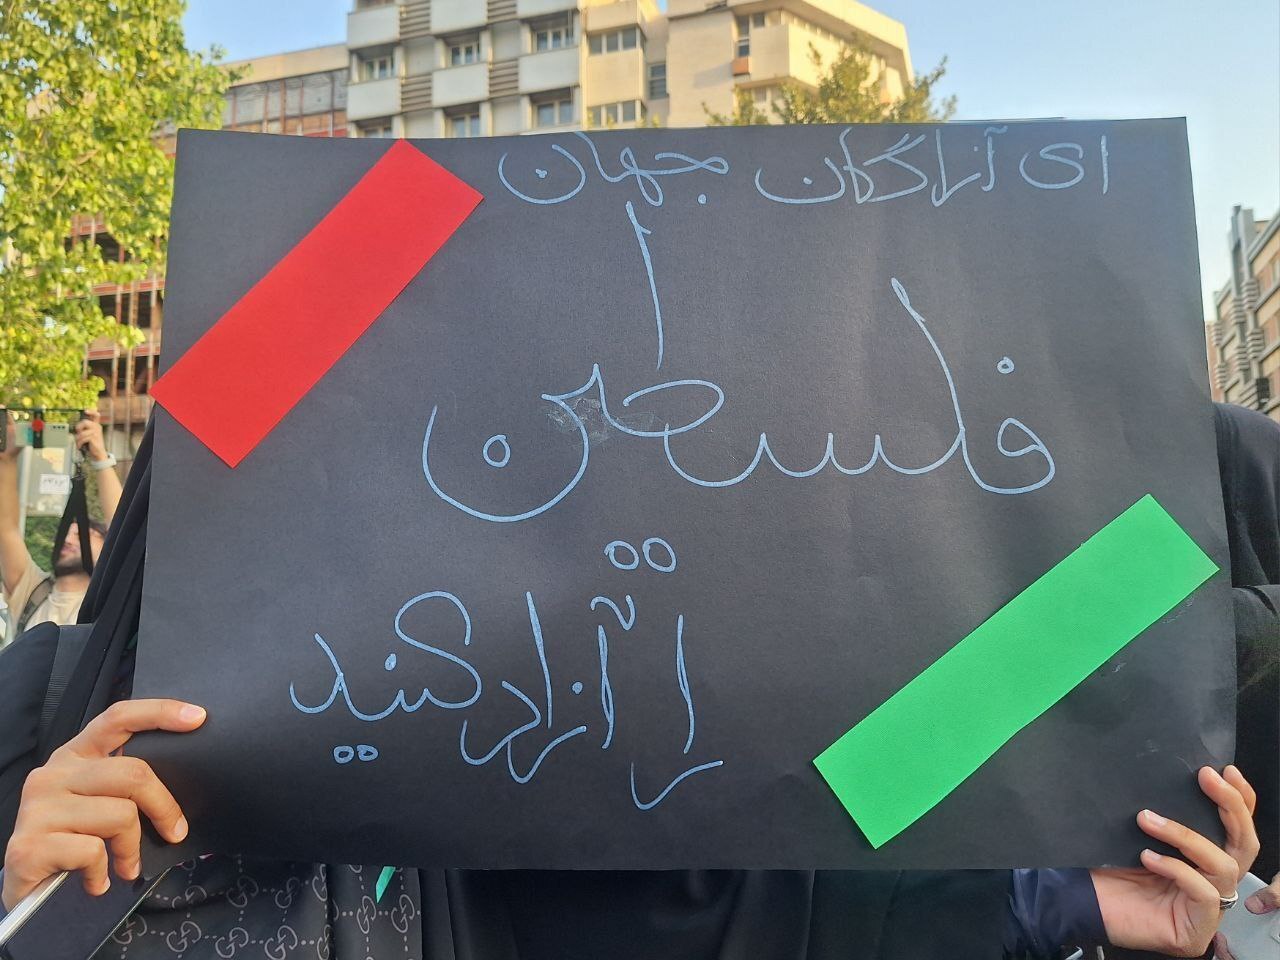 ای آزادگان جهان
فلسطین
را آزاد کنید